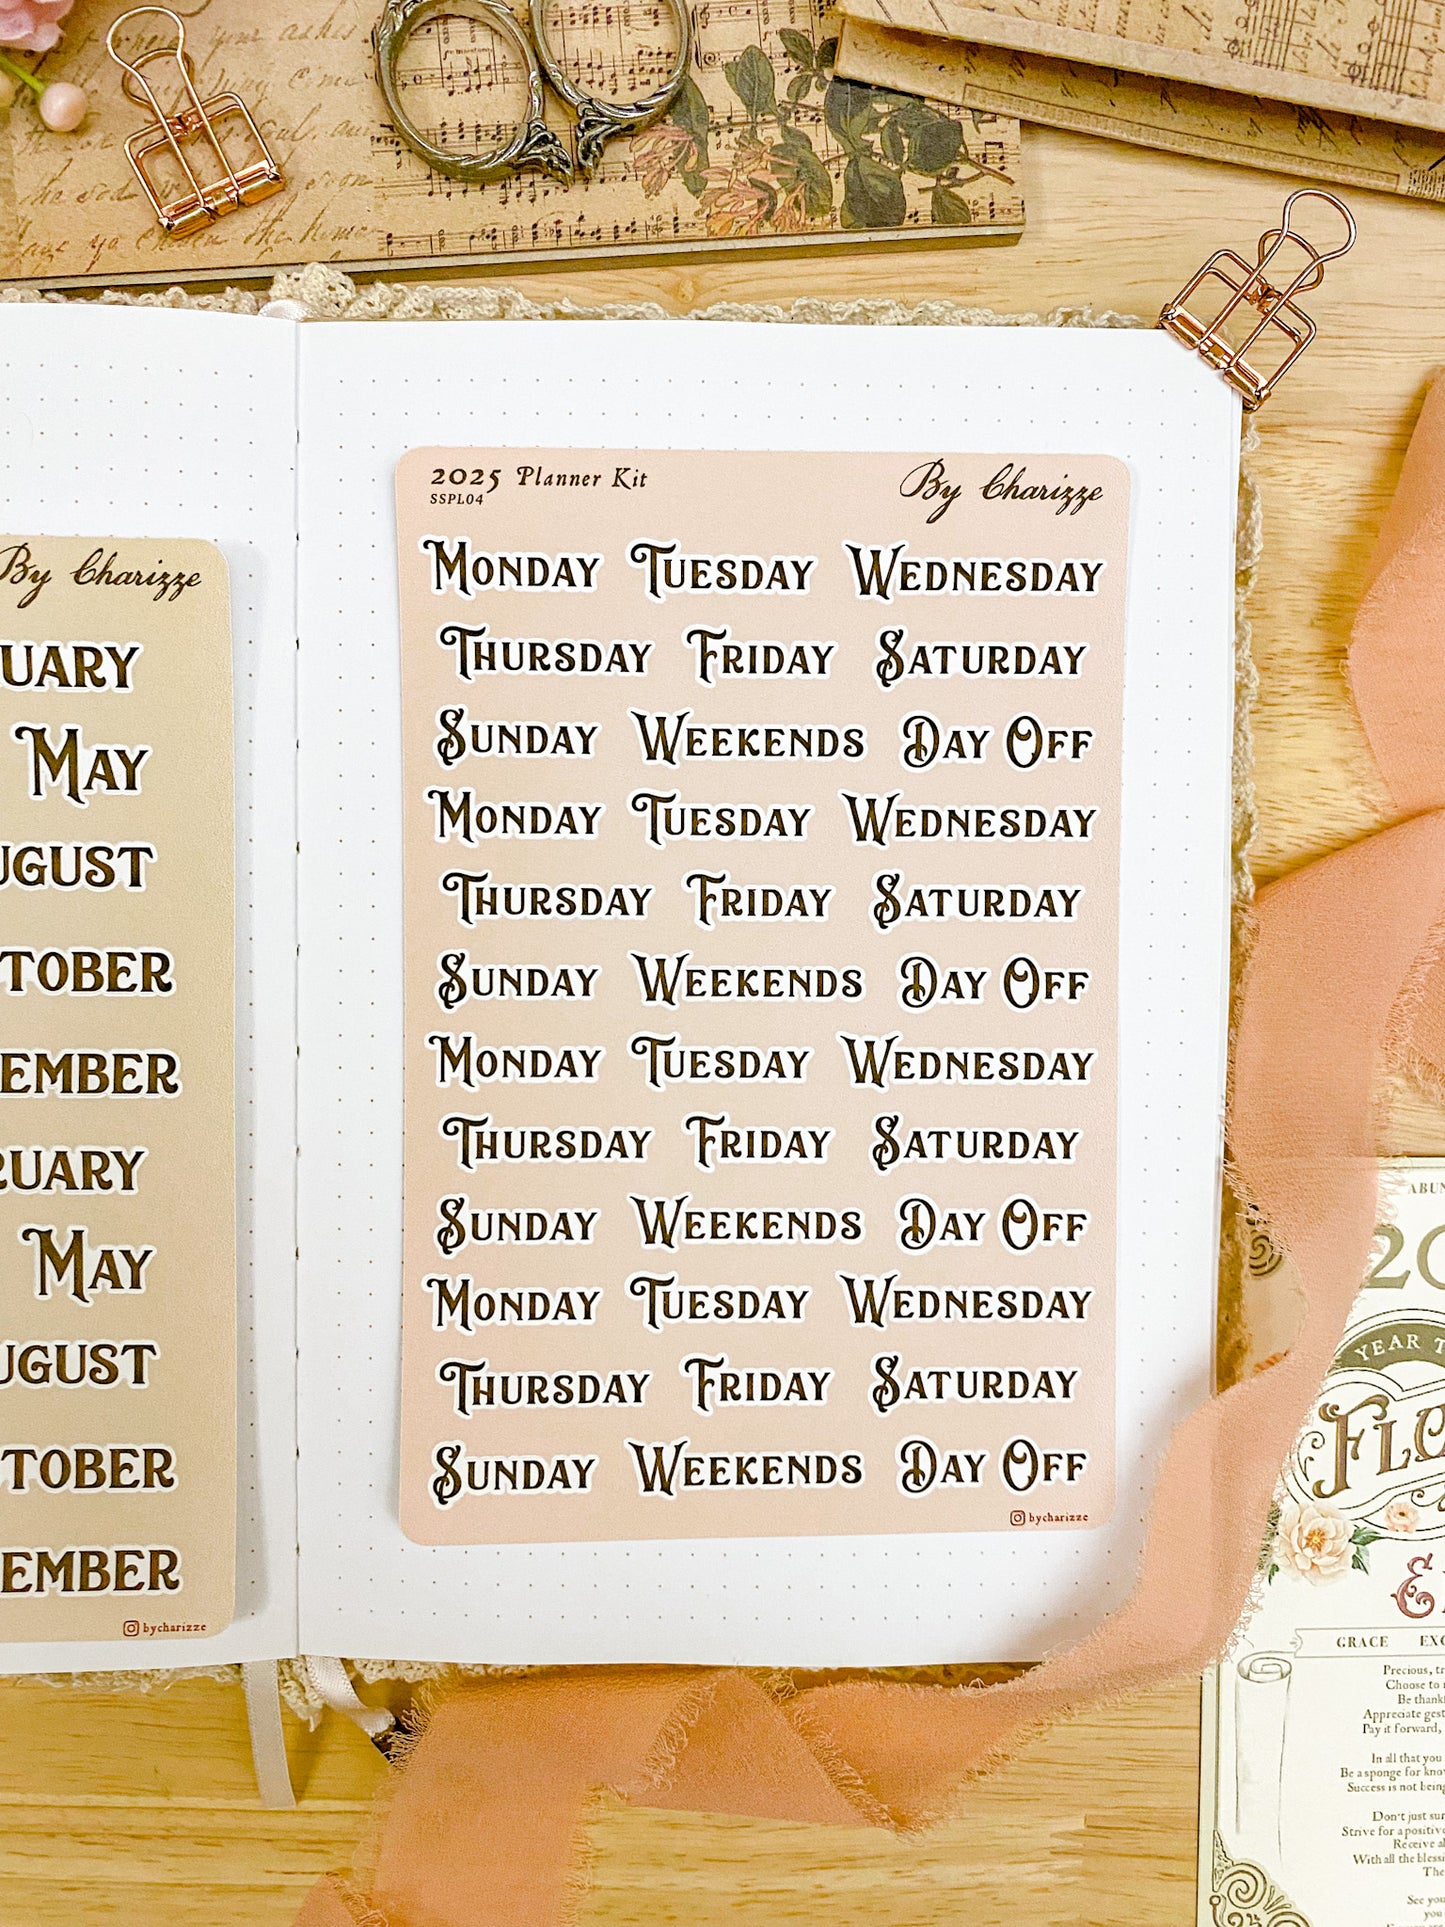 2025 Planner Kit
SSPL04
By Charizze
Monday Tuesday Wednesday
Thursday Friday Saturday
Sunday Weekends Day Off
Monday Tuesday Wednesday
Thursday Friday Saturday
Sunday Weekends Day Off
Monday Tuesday Wednesday
Thursday Friday Saturday
Sunday Weekends Day Off
Monday Tuesday Wednesday
Thursday Friday Saturday
Sunday Weekends Day Off
bycharizze
By Charizze
UARY
May
UGUST
TOBER
EMBER
RUARY
May
UGUST
TOBER
EMBER
bycharizze
ABUN
20
YEAR T
GRACE
Precious, tr
Choose to
Be thank
Appreciate gest
Pay it forward,
In all that you
Be a sponge for know
Success is not being
Don't just sur
Strive for a positive
Receive al
With all the bless
The
See you
you